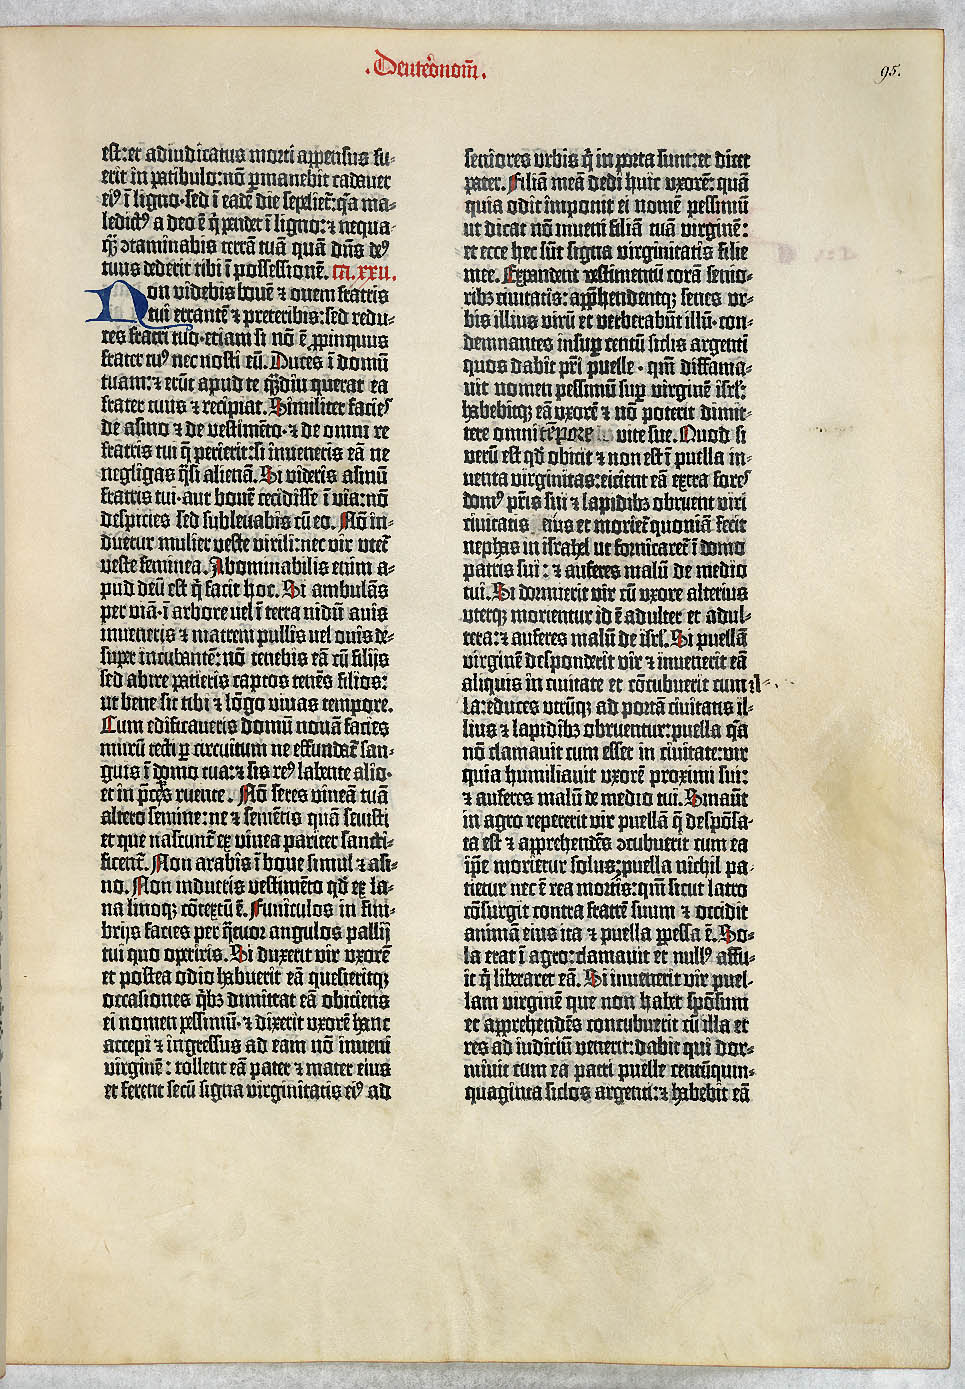 .Deuteronom̄.
95.
est: et adiudicatus morti appensus fu-
erit in patibulo: nō ꝑmanebit cadauer
eiꝰ ī ligno· sed ī eadē die sepelietʳ: qꝛa ma-
ledictꝰ a deo ē qͥ pendet ī ligno: ⁊ nequa-
qͣꝫ ↄtaminabis terrā tuā quā dn̄s deꝰ
tuus dederit tibi ī possessionē. Ca. xxii.
Non videbis bouē ⁊ ouem fratris
tui errantē ⁊ preteribis: sed redu-
ces fratri tuo· etiam si nō ē ꝓpinquus
frater tuꝰ nec nosti eū. Duces ī domū
tuam: ⁊ erūt apud te qͣꝫdiu querat ea
frater tuus ⁊ recipiat. Similiter facieˢ
de asino ⁊ de vestimēto· ⁊ de omni re
fratris tui q̄ perierit: si inueneris eā ne
negligas qͣsi alienā. Si videris asinū
fratris tui· aut bouē cecidisse ī via: nō
despicies sed subleuabis cū eo. Nō in-
duetur mulier veste virili: nec vir vtetʳ
veste feminea. Abominabilis enim a-
pud deū est qͥ facit hoc. Si ambulās
per viā· ī arbore uel ī terra nidū auis
inueneris ⁊ matrem pullis uel ouis de-
super incubantē: nō tenebis eā cū filijs
sed abire patieris captos tenēs filios:
ut bene sit tibi ⁊ lōgo viuas tempore.
Cum edificaueris domū nouā facies
murū tecti ꝑ circuitum ne effundatʳ san-
guis ī domo tua: ⁊ sis reꝰ labente alio·
et in p̄ceps ruente. Nō seres vineā tuā
altero semine: ne ⁊ semētis quā seuisti
et que nascuntʳ ex vinea pariter sancti-
ficentʳ. Non arabis ī boue simul ⁊ asi-
no. Non indueris vestimēto qd̄ ex la-
na linoqꝫ cōtextū ē. Funiculos in fim-
brijs facies per q̄tuor angulos pallij
tui quo opiris. Si duxerit vir vxorē
et postea odio habuerit eā quesieritqꝫ
occasiones qͥbꝫ dimittat eā obiciens
ei nomen pessimū· ⁊ dixerit vxorē hanc
accepi ⁊ ingressus ad eam nō inueni
virginē: tollent eā pater ⁊ mater eius
et ferent secū signa virginitatis eiꝰ ad
seniores vrbis qͥ in porta sunt: et dicet
pater. Filiā meā dedi huic vxorē: quā
quia odit imponit ei nomē pessimū
ut dicat nō inueni filiā tuā virginē:
et ecce hec sūt signa virginitatis filie
mee. Expandent vestimentū corā senio-
ribꝫ ciuitatis: apprehendentqꝫ senes vr-
bis illius virū et verberabūt illū· con-
demnantes insuꝑ centū siclis argenti
quos dabit pr̄i puelle· qm̄ diffama-
uit nomen pessimū suꝑ virginē isrl̄:
habebitqꝫ eā vxorē ⁊ nō poterit dimit-
tere omni tēpore vite sue. Quod si
verū est qd̄ obicit ⁊ non est ī puella in-
uenta virginitas: eicient eā extra foreˢ
domꝰ pr̄is sui ⁊ lapidibꝫ obruent viri
ciuitatis eius et morietʳ quoniā fecit
nephas in israhel ut fornicaretʳ ī domo
patris sui: ⁊ auferes malū de medio
tui. Si dormierit vir cū vxore alterius
vterqꝫ morientur id ē adulter et adul-
tera: ⁊ auferes malū de isrl̄. Si puellā
virginē desponderit vir ⁊ inuenerit eā
aliquis in ciuitate et cōcubuerit cum il-
la: educes utrūqꝫ ad portā ciuitatis il-
lius ⁊ lapidibꝫ obruentur: puella qͣa
nō clamauit cum esset in ciuitate: vir
quia humiliauit vxorē proximi sui:
⁊ auferes malū de medio tui. Sin aūt
in agro reppererit vir puellā q̄ despōsa-
ta est ⁊ apprehendēs ↄcubuerit cum ea
ip̄e morietur solus: puella nichil pa-
tietur nec ē rea mortis: qm̄ sicut latro
cōsurgit contra fratrē suum ⁊ occidit
animā eius ita ⁊ puella ꝑpessa ē. So-
la erat ī agro: clamauit et nullꝰ affu-
it qͥ liberaret eā. Si inuenerit vir puel-
lam virginē que non habet spōsum
et apprehendēs concubuerit cū illa et
res ad iudiciū venerit: dabit qui dor-
miuit cum ea patri puelle centūquin-
quaginta siclos argenti: ⁊ habebit eā